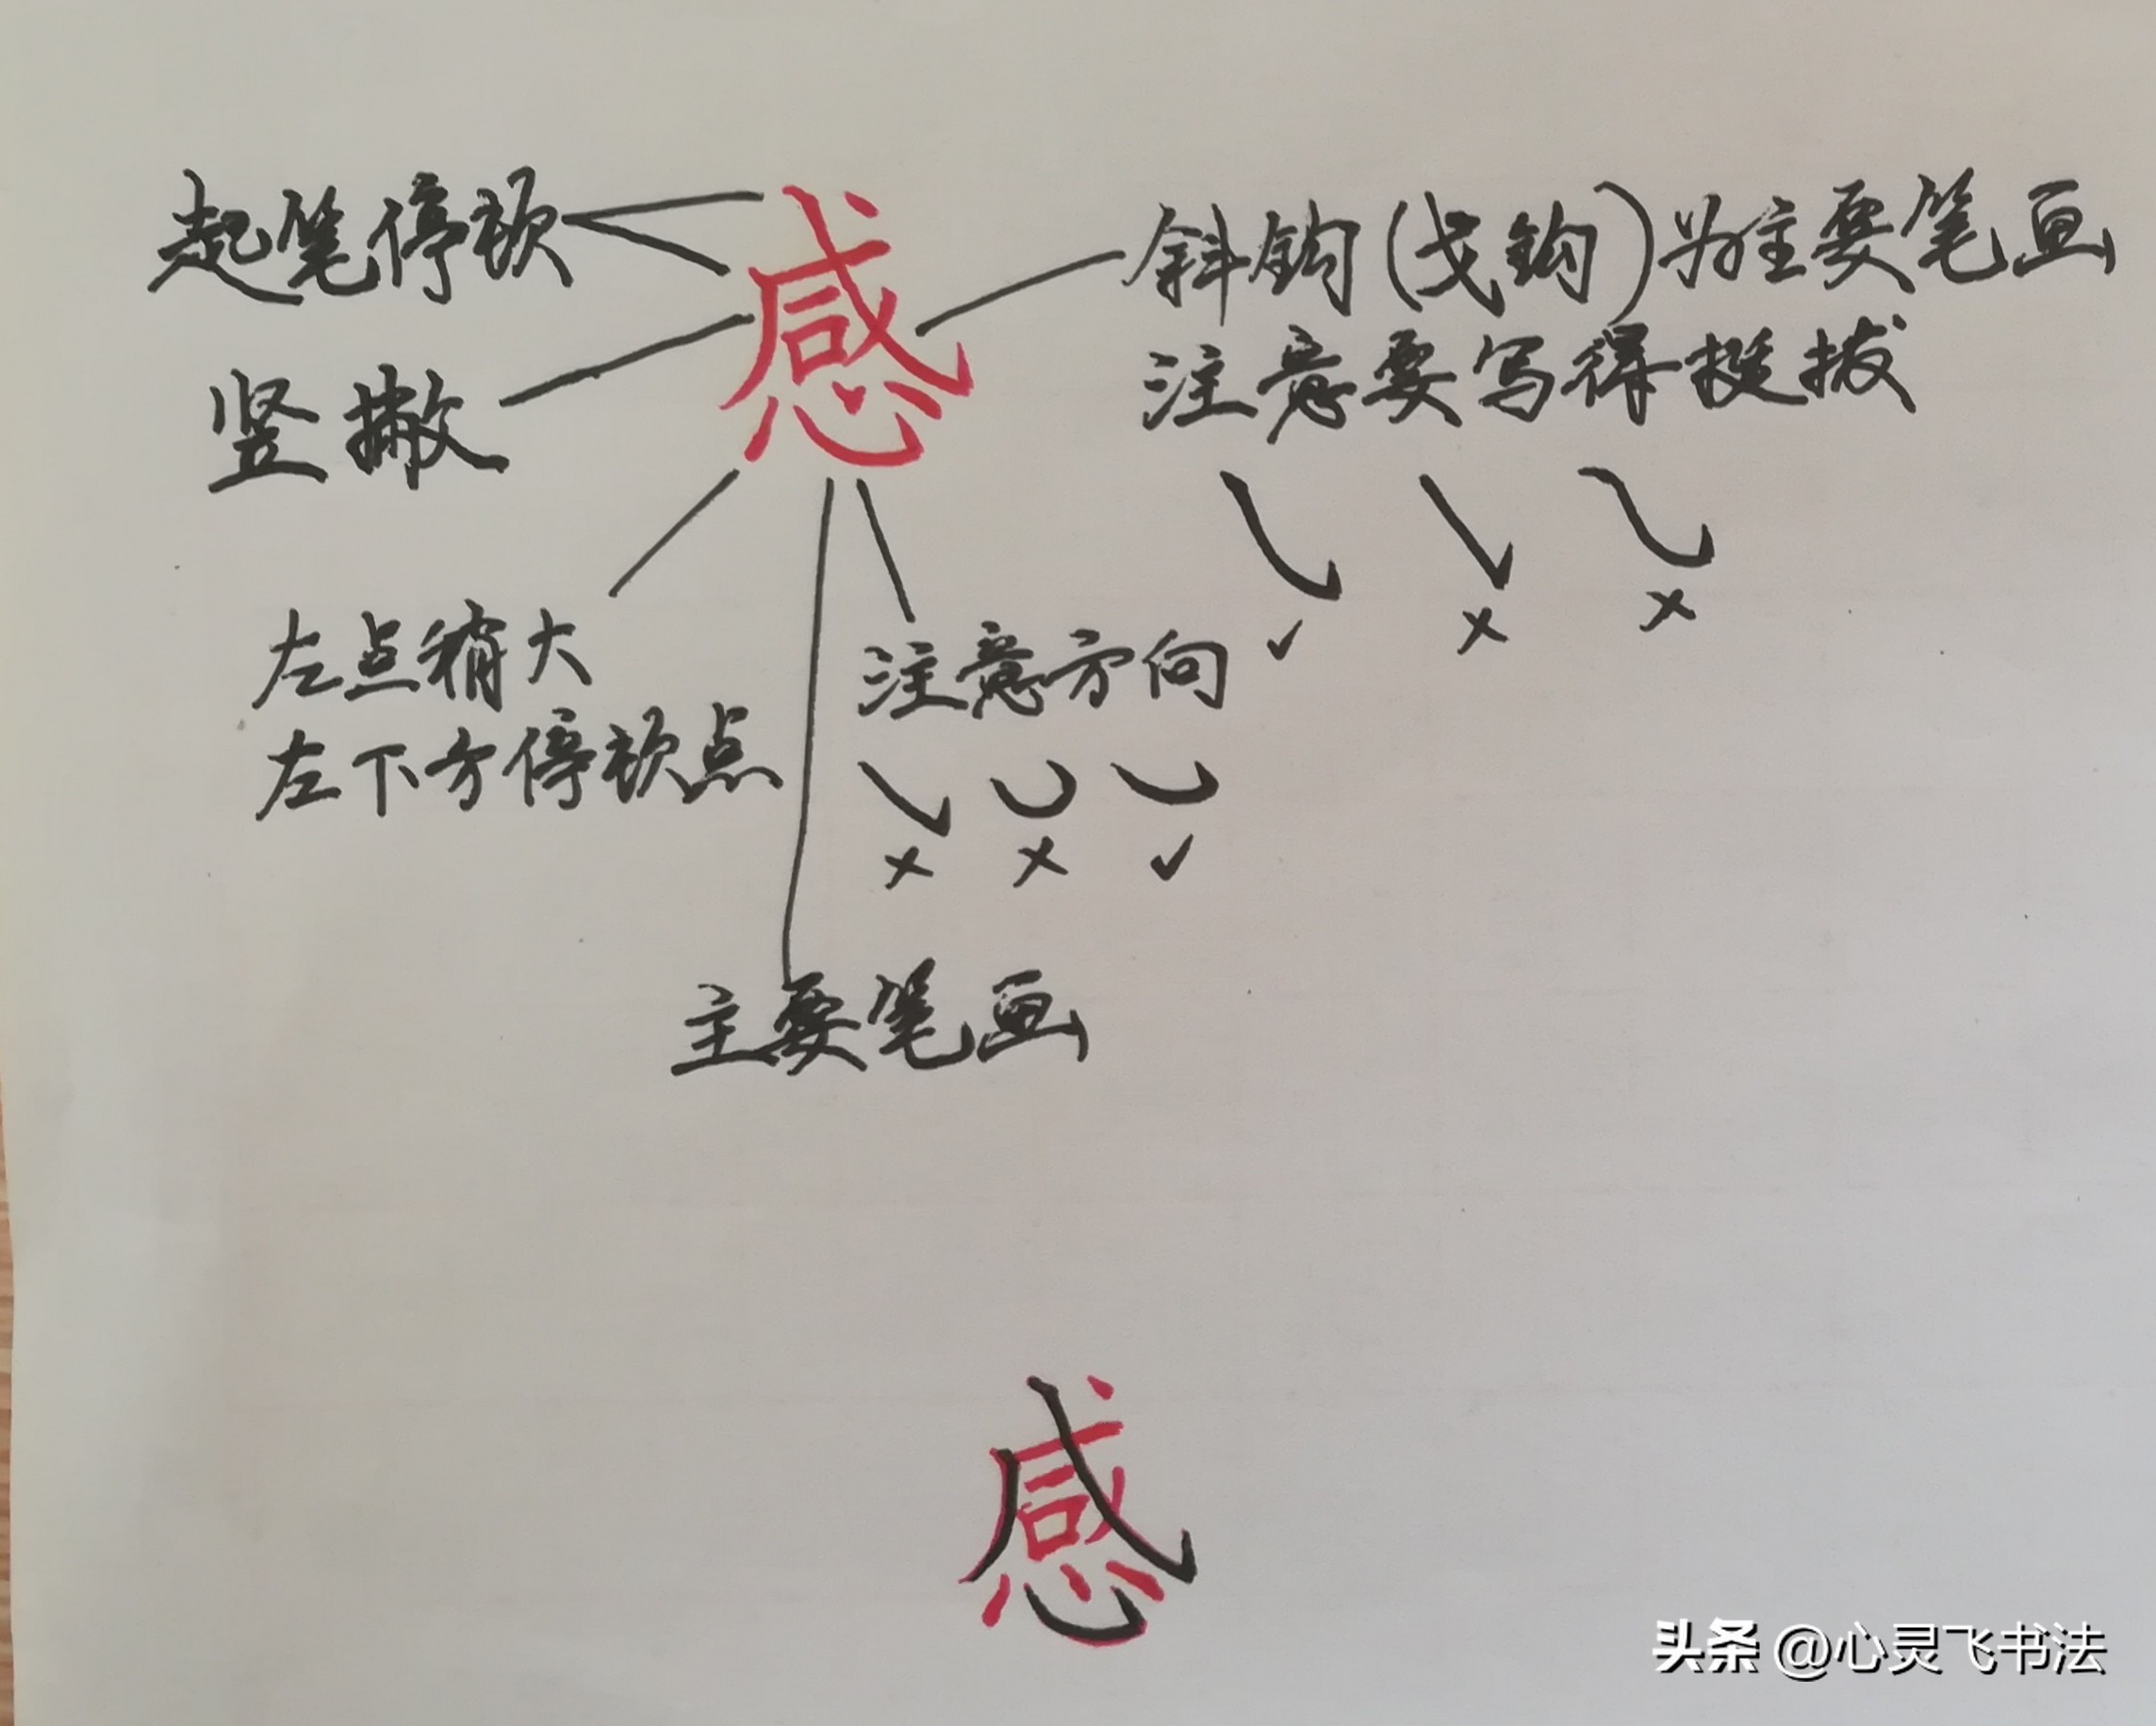 感
起笔停顿
竖撇
斜钩(戈钩)为主要笔画
注意要写得挺拔
✓ × ×
左点稍大
左下方停顿点
注意方向
× × ✓
主要笔画
感
头条 @心灵飞书法